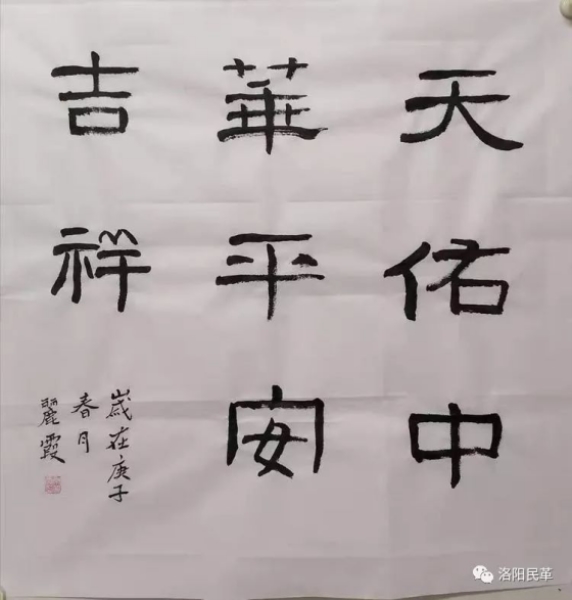 天佑中
華平安
吉祥
歲在庚子
春月
麗霞
洛阳民革